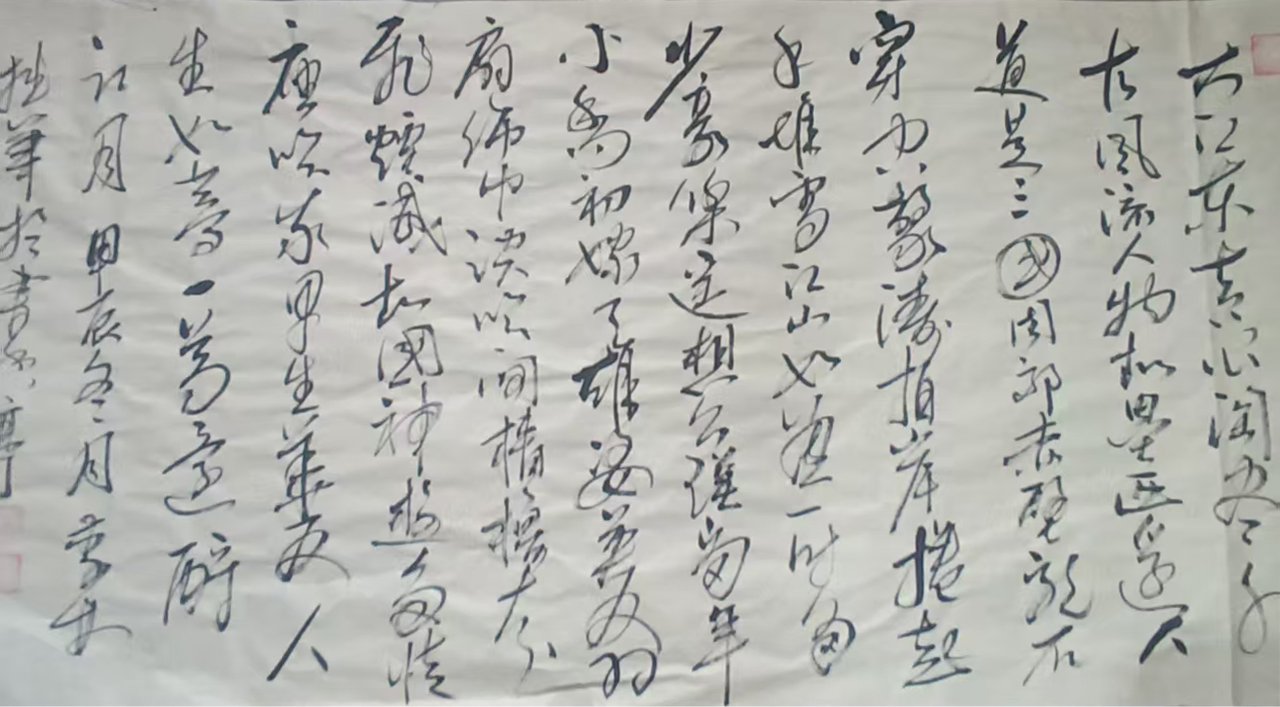 大江东去浪淘尽千
古风流人物故垒西边人
道是三國周郎赤壁乱石
穿空惊濤拍岸捲起
千堆雪江山如畫一时多
少豪傑遥想公瑾当年
小喬初嫁了雄姿英发羽
扇纶巾谈笑间檣櫓灰
飛煙滅故國神遊多情
应笑我早生华发人
生如夢一尊还酹
江月 甲辰冬月
拙筆於書